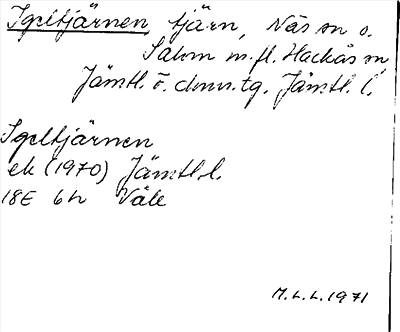 Igeltjärnen, tjärn, Näs sn o.
Salom m.fl. Hackås sn,
Jämtl. ö. doms.tg. Jämtl. l.
Igeltjärnen
ek (1970) Jämtl.l.
18E 6h Våle
M.L.L.1971